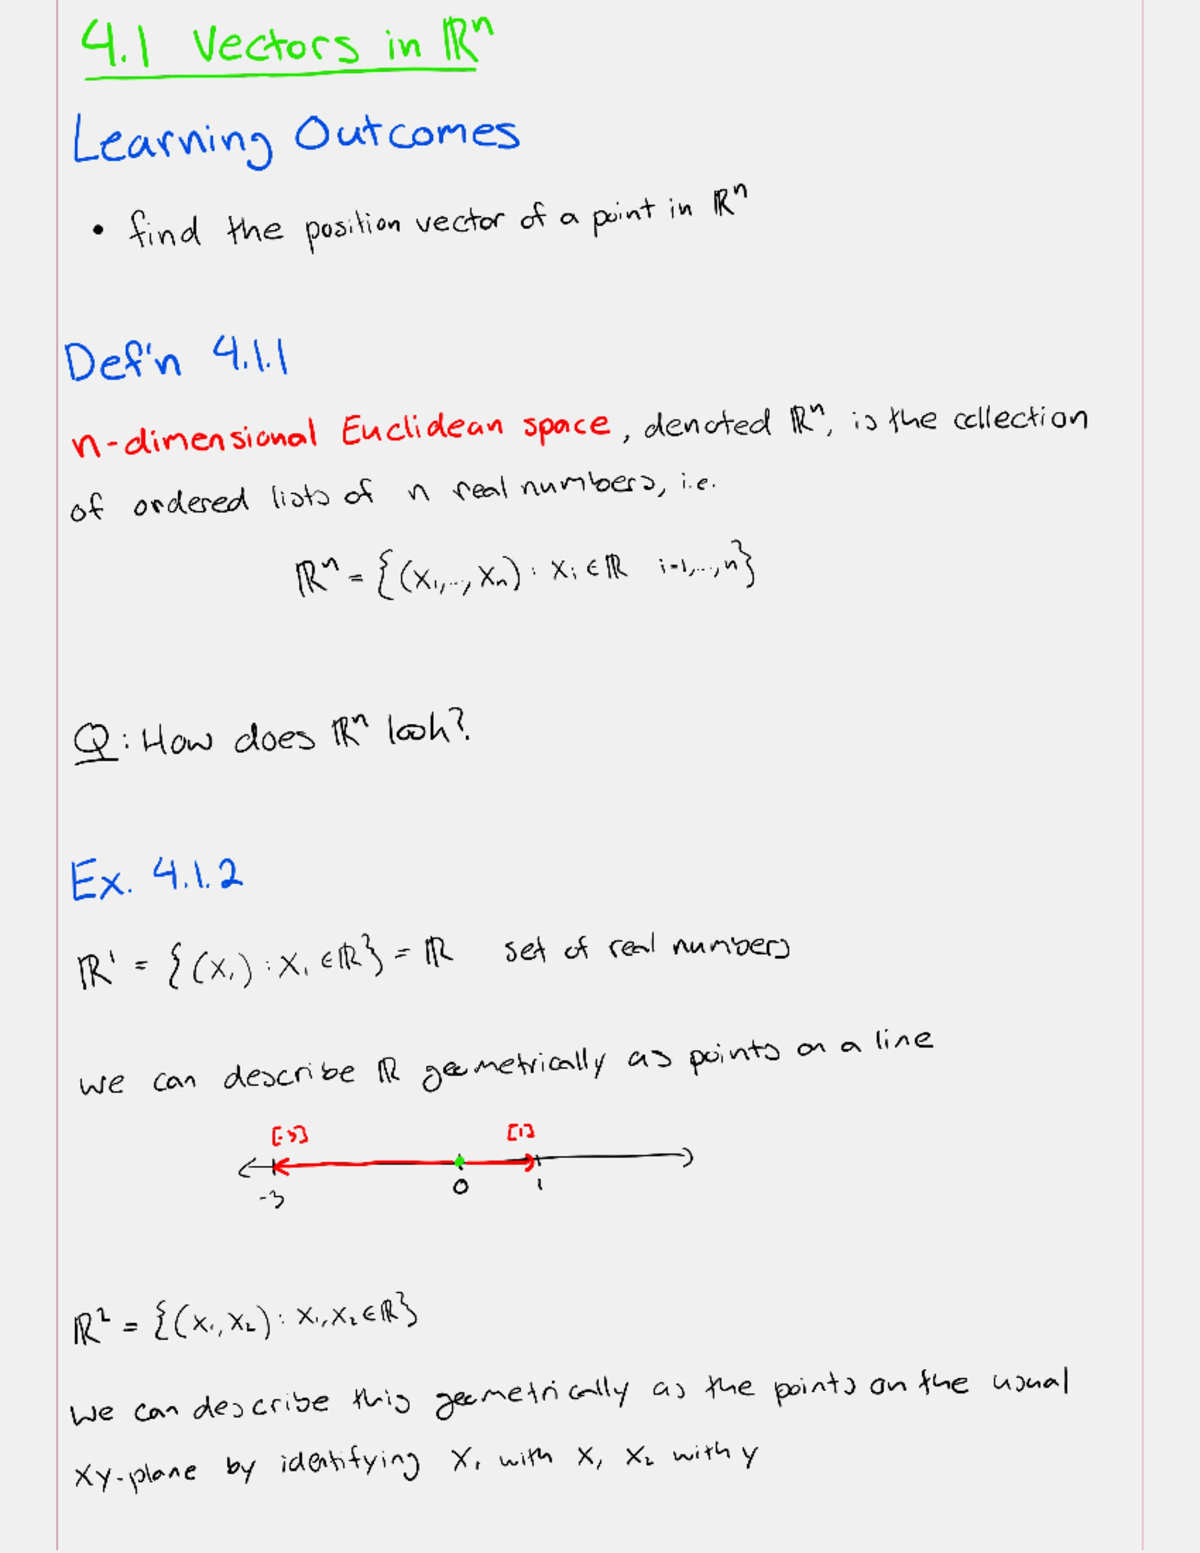 4.1 Vectors in ℝⁿ
Learning Outcomes
• find the position vector of a point in ℝⁿ
Def'n 4.1.1
n-dimensional Euclidean space, denoted ℝⁿ, is the collection
of ordered lists of n real numbers, i.e.
ℝⁿ = {(x₁,..., xₙ) : xᵢ ∈ ℝ i=1,...,n}
Q: How does ℝⁿ look?
Ex. 4.1.2
ℝ¹ = {(x₁) : x₁ ∈ ℝ} = ℝ set of real numbers
we can describe ℝ geometrically as points on a line
[-3] [1]
-3 0 1
ℝ² = {(x₁, x₂) : x₁, x₂ ∈ ℝ}
we can describe this geometrically as the points on the usual
xy-plane by identifying x₁ with x, x₂ with y